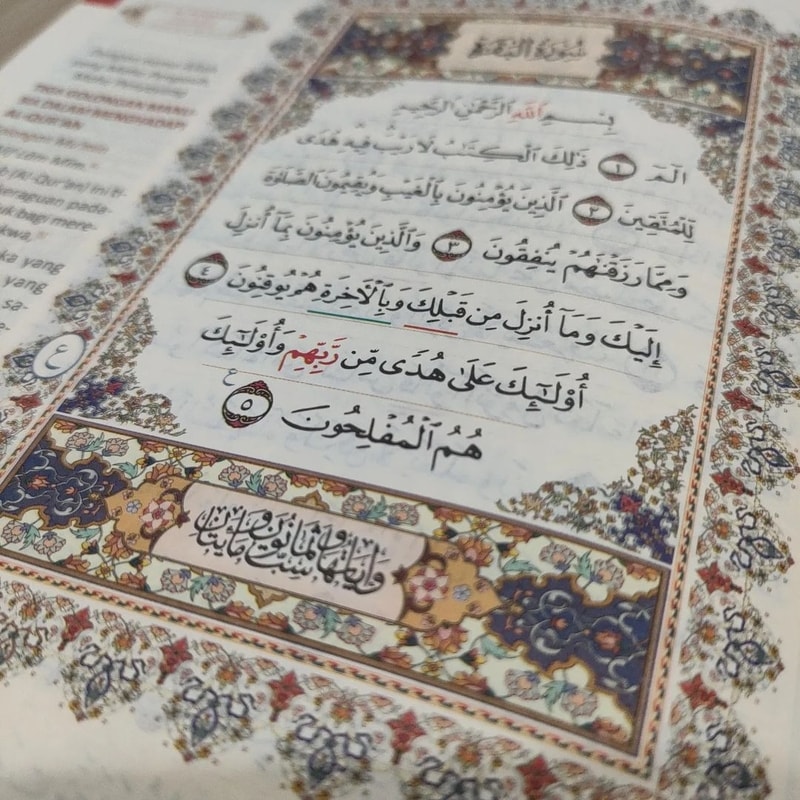 سورة البقرة
بِسْمِ اللَّهِ الرَّحْمَٰنِ الرَّحِيمِ
الٓمٓ ١ ذَٰلِكَ ٱلْكِتَٰبُ لَا رَيْبَ فِيهِ هُدًى
لِّلْمُتَّقِينَ ٢ ٱلَّذِينَ يُؤْمِنُونَ بِٱلْغَيْبِ وَيُقِيمُونَ ٱلصَّلَوٰةَ
وَمِمَّا رَزَقْنَٰهُمْ يُنفِقُونَ ٣ وَٱلَّذِينَ يُؤْمِنُونَ بِمَآ أُنزِلَ
إِلَيْكَ وَمَآ أُنزِلَ مِن قَبْلِكَ وَبِٱلْءَاخِرَةِ هُمْ يُوقِنُونَ ٤
أُو۟لَٰٓئِكَ عَلَىٰ هُدًى مِّن رَّبِّهِمْ وَأُو۟لَٰٓئِكَ
هُمُ ٱلْمُفْلِحُونَ ٥
ع
ع
وآياتها مائتان وست وثمانون
AL-QUR'AN
(Al-Qur'an) ini
keraguan pada-
bagi mere-
yang
yang
sa-